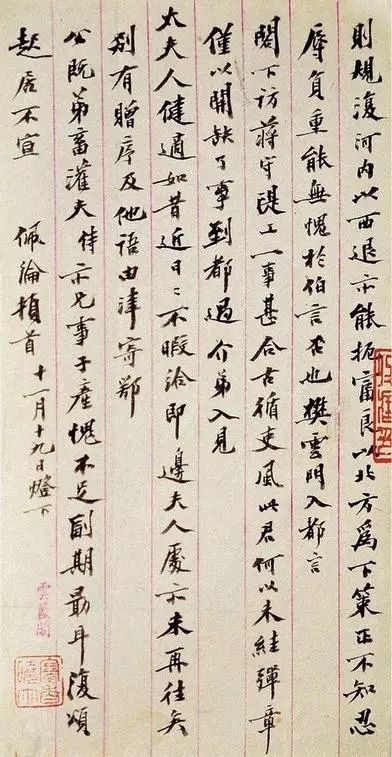 則規復河內以西退亦能扼富良以北方為下策正不知忍
辱負重能無愧於伯言否也樊雲門入都言
閣下訪蔣守隄工一事甚合古循吏風此君何以未絓彈章
僅以開缺了事到都過介弟入見
太夫人健適如昔近日不暇洽即邊夫人處亦未再往矣
別有贈序及他語由津寄鄂
公既弟畜灌夫侍亦兄事子產愧不足副期勗耳復頌
起居不宣 佩綸頓首 十一月十九日燈下
雲藍閣